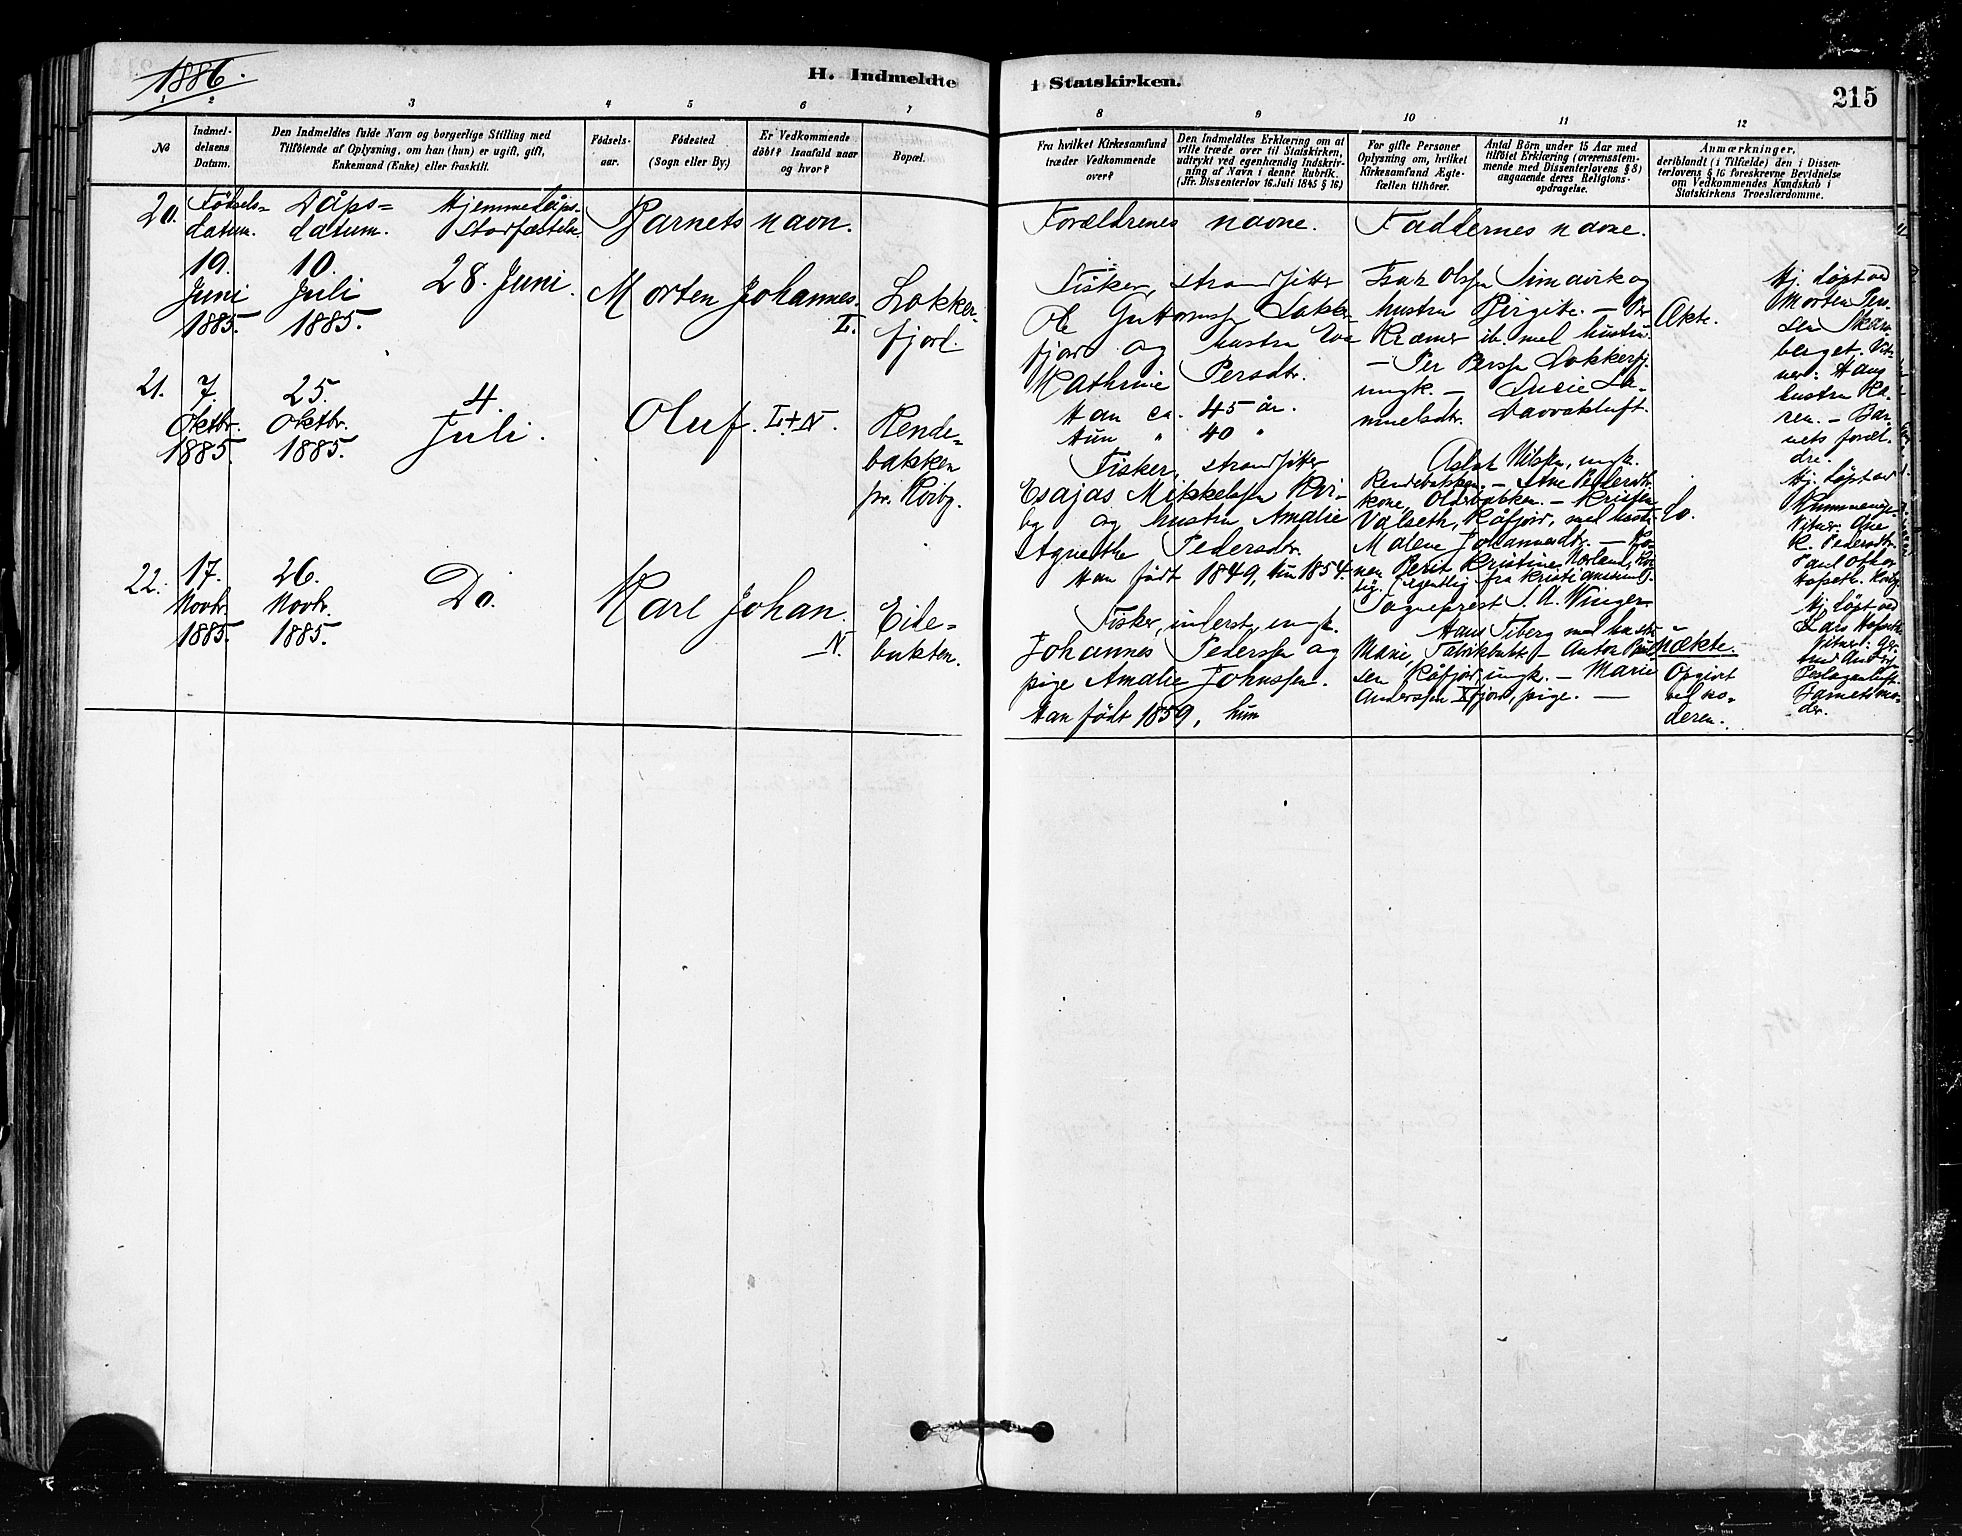 1886.
H. Indmeldte
i Statskirken.
215
1 2 3 4 5 6 7 8 9 10 11 12
No
Indmel-
delsens
Datum.
Den Indmeldtes fulde Navn og borgerlige Stilling med
Tilföiende af Oplysning, om han (hun) er ugift, gift,
Enkemand (Enke) eller fraskilt.
Födsels-
aar.
Födested
(Sogn eller By.)
Er Vedkommende
döbt? Isaafald naar
og hvor?
Bopæl.
Fra hvilket Kirkesamfund
træder Vedkommende
over?
Den Indmeldtes Erklæring om at
ville træde over til Statskirken,
udtrykt ved egenhændig Indskriv-
ning af Navn i denne Rubrik.
(Jfr. Dissenterlov 16. Juli 1845 § 16.)
For gifte Personer
Oplysning om, hvilket
Kirkesamfund Ægte-
fællen tilhörer.
Antal Börn under 15 Aar med
tilföiet Erklæring (overensstem-
mende med Dissenterlovens § 8)
angaaende deres Religions-
opdragelse.
Anmærkninger,
deriblandt (i Tilfælde) den i Dissen-
terlovens § 16 foreskrevne Bevidnelse
om Vedkommendes Kundskab i
Statskirkens Troeslærdomme.
20.
Fødsels=
datum.
Dåps=
datum.
Hjemmedåps-
Stadfæstelse
Barnets navn.
Forældrenes navne.
Faddernes navne.
19.
Juni
1885.
10.
Juli
1885.
28. Juni.
Morten Johannes.
L.
Lokker-
fjord.
Fisker, strandsitter
Ole Guttormsen Lokker-
fjord og hustru Eva
Kathrine Persdtr.
Han ca. 45 år.
Hun " 40 "
Isak Olsen Simavik og
hustru Birgite. — Per
Kræmer ib. med hustru.
— Per Persen Lokkerfj.
ungk. — Lucie Sa-
muelsdtr. Davvakluft.
Ækte.
Hj. døpt ved
Morten Pen-
sen Skan-
berget. Vit-
ner: Hans
hustru Ka-
ren. — Bar-
nets foræl-
dre.
21.
7.
Oktbr.
1885.
25.
Oktbr.
1885.
4.
Juli.
Oluf. L+N.
Rende-
bakken
pr. Kviby.
Fisker, strandsitter
Esajas Mikkelsen Kvi-
by og hustru Amalie
Agnethe Pedersdtr.
Han født 1849, hun 1854.
Aslak Nilsen, ungk.
Rendebakken. — Ane Pedersdtr.
kone, Olderbakken. — Kristen
Valseth, Kåfjord, med hustru
Malene Johannesdtr. — Ko-
nen Berit Kristine Norlund, Kvi-
by. Egentlig fra Kristianssund.
Do.
Hj. døpt ved
Vitner: Ane
K. Pedersdtr.
Hopseth. Kviby
22.
17.
Novbr.
1885.
26.
Novbr.
1885.
Do.
Karl Johan.
N.
Eide-
bukten.
Fisker, inderst, ungk.
Johannes Pedersen og
pige Amalie Johnssen.
Han født 1859, hun
Sogneprest J. A. Winger
Hans Fiberg med hustru
Marie, Talvikbukt — Anton Paul-
sen Kåfjord, ungk. — Marie
Anderssen Kfjord, pige. —
Uækte.
Opgivet
ved mo-
deren.
Hj. døpt ved
Lars Hopseth
Vitner:
Barnets mo-
der.